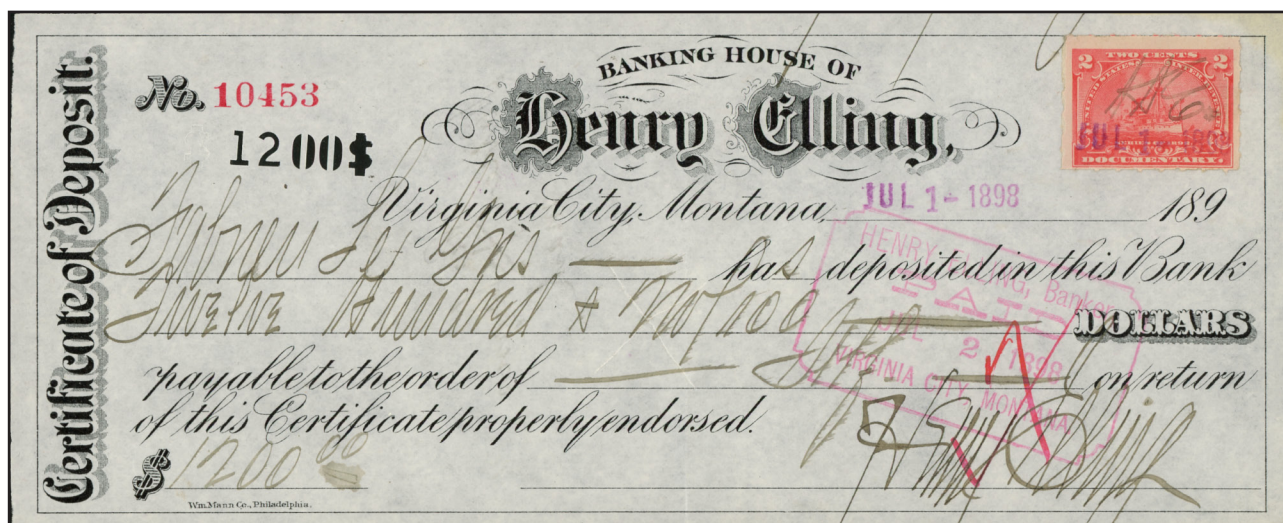 Certificate of Deposit.
No. 10453
1200$
BANKING HOUSE OF
Henry Elling,
TWO CENTS
2 2
UNITED STATES INTERNAL REVENUE
JUL 1-
DOCUMENTARY.
Virginia City, Montana, JUL 1-1898 189
has deposited in this Bank
Twelve Hundred & no/100 DOLLARS
HENRY ELLING, Banker
PAID
JUL 2 1898
VIRGINIA CITY, MONTANA
payable to the order of on return
of this Certificate properly endorsed.
$1200 00
Henry Elling
Wm. Mann Co., Philadelphia.